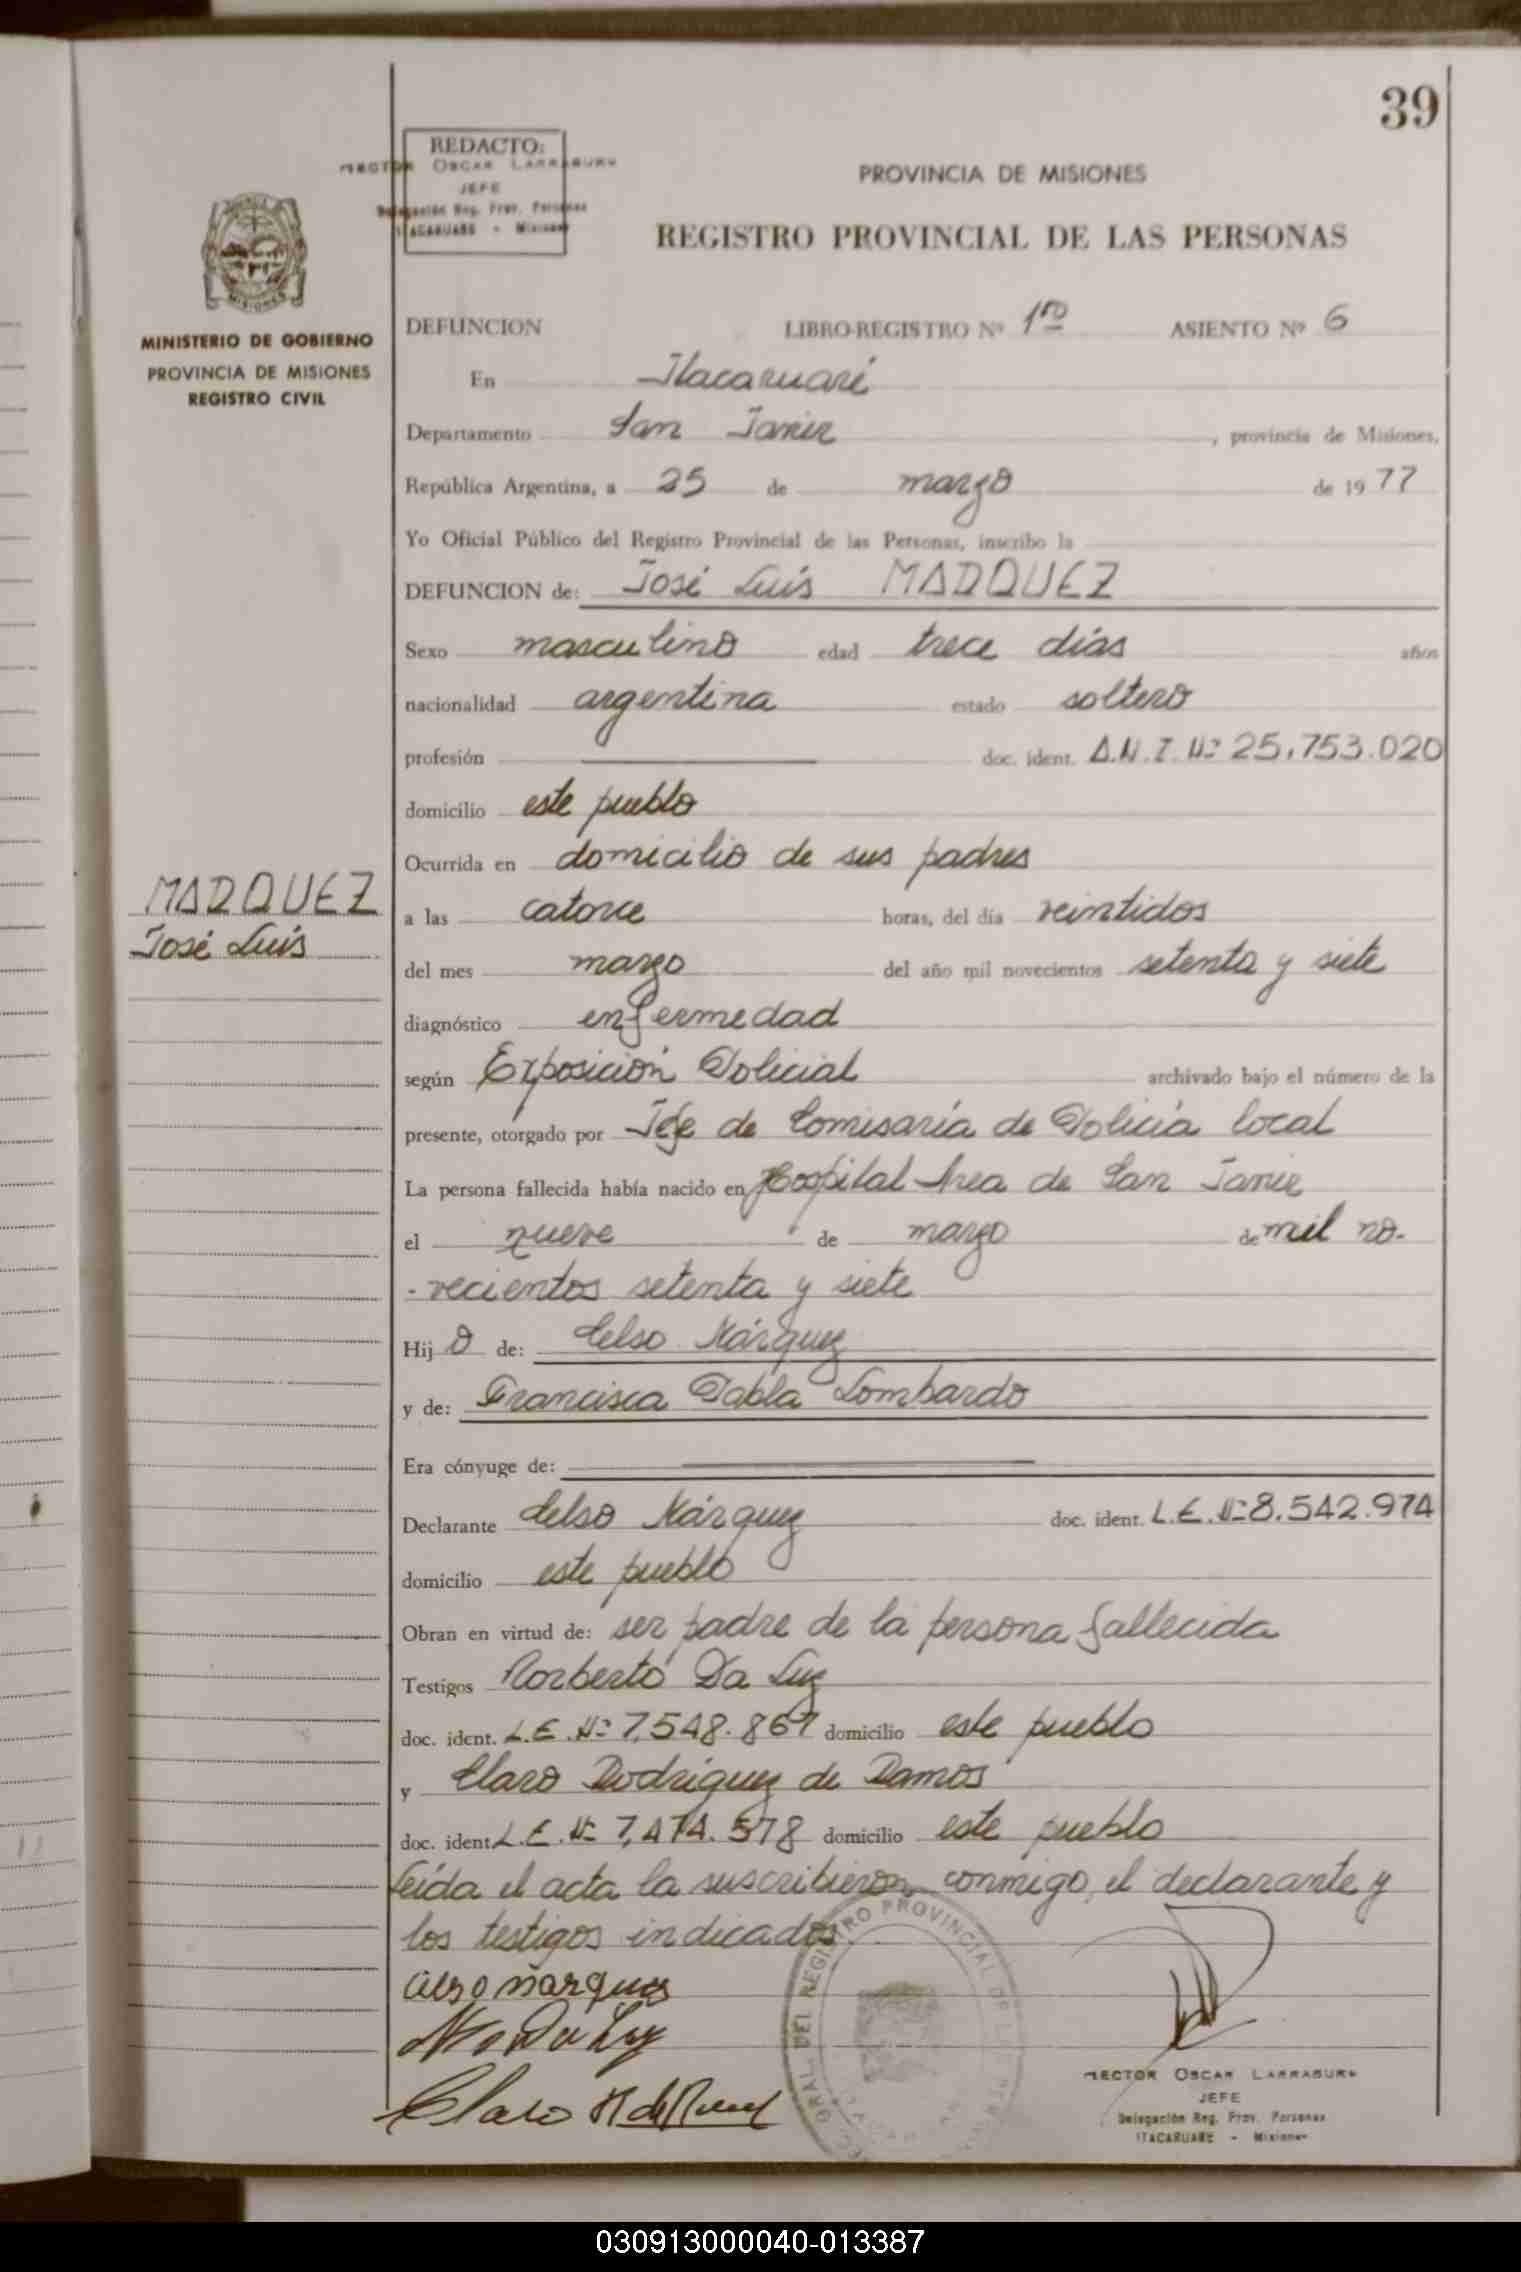 39
REDACTO:
HECTOR OSCAR LARRABURU
JEFE
Delegación Reg. Prov. Personas
ITACARUARE - Misiones
PROVINCIA DE MISIONES
REGISTRO PROVINCIAL DE LAS PERSONAS
MISIONES
MINISTERIO DE GOBIERNO
PROVINCIA DE MISIONES
REGISTRO CIVIL
DEFUNCION LIBRO-REGISTRO Nº 1ro ASIENTO Nº 6
En Itacaruaré
Departamento San Javier, provincia de Misiones,
República Argentina, a 25 de marzo de 1977
Yo Oficial Público del Registro Provincial de las Personas, inscribo la
DEFUNCION de: José Luis MARQUEZ
Sexo masculino edad trece días años
nacionalidad argentina estado soltero
profesión doc. ident. D.N.I. Nº 25.753.020
domicilio este pueblo
Ocurrida en domicilio de sus padres
MARQUEZ
José Luis
a las catorce horas, del día veintidos
del mes marzo del año mil novecientos setenta y siete
diagnóstico enfermedad
según Exposición Policial archivado bajo el número de la
presente, otorgado por Jefe de Comisaría de Policía local
La persona fallecida había nacido en Hospital Area de San Javier
el nueve de marzo de mil no-
-vecientos setenta y siete
Hijo de: Celso Márquez
y de: Francisca Pabla Lombardo
Era cónyuge de:
Declarante Celso Márquez doc. ident. L.E. Nº 8.542.974
domicilio este pueblo
Obran en virtud de: ser padre de la persona fallecida
Testigos Norberto Da Luz
doc. ident. L.E. Nº 7.548.867 domicilio este pueblo
y Claro Rodríguez de Ramos
doc. ident. L.E. Nº 7.474.578 domicilio este pueblo
Leída el acta la suscribieron conmigo, el declarante y
los testigos indicados.
celso marques
DEL REGISTRO PROVINCIAL DE LAS PERSONAS
HECTOR OSCAR LARRABURU
JEFE
Delegación Reg. Prov. Personas
ITACARUARE - Misiones
030913000040-013387